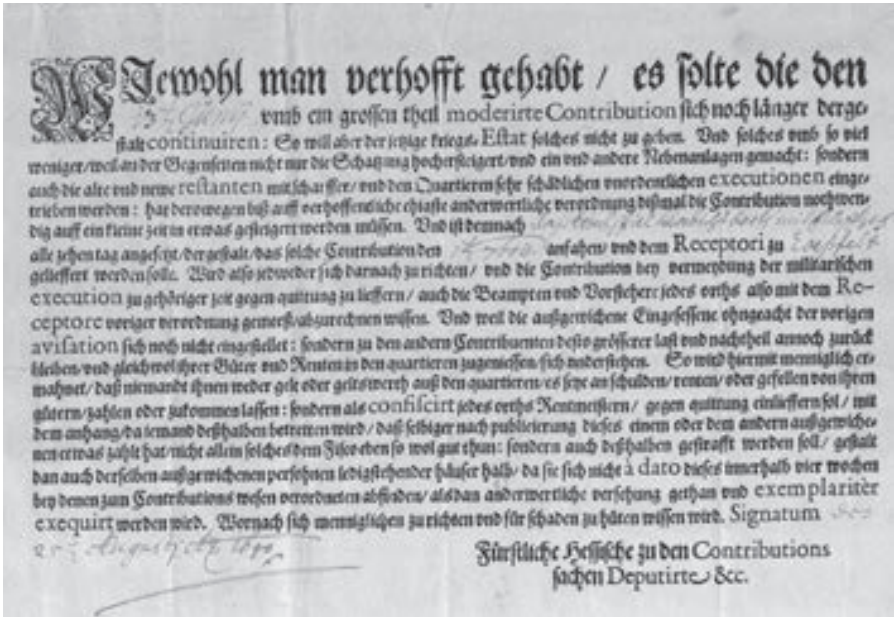 WJewohl man verhofft gehabt / es solte die den
vmb ein grossen theil moderirte Contribution sich noch länger derge-
stalt continuiren: So will aber der jetzige kriegs-Estat solches nicht zu geben. Vnd solches vmb so viel
weniger/weil an der Gegenseiten nicht nur die Schatzung hochersteigert/vnd ein vnd andere Nebenanlagen gemacht: sondern
auch die alte vnd newe restanten mit scharffer/vnd den Quartieren sehr schädlichen vnordentlichen executionen einge-
trieben werden: hat derowegen biß auff verhoffentliche ehiste anderwertliche verordnung dißmal die Contribution nochwen-
dig auff ein kleine zeit in etwas gesteigert werden müssen. Vnd ist demnach
alle zehen tag angesetzt/dergestalt/das solche Contribution den anfahen/vnd dem Receptori zu Coesfelt
gelieffert werden solle. Wird also jedweder sich darnach zu richten/ vnd die Contribution bey vermeydung der militarischen
execution zu gehöriger zeit gegen quittung zu lieffern/ auch die Beampten vnd Vorstehere jedes orths also mit dem Re-
ceptore voriger verordnung gemeeß/abzurechnen wissen. Vnd weil die außgewichene Eingesessene ohngeacht der vorigen
avisation sich noch nicht eingestellet: sondern zu den andern Contribuenten desto grösserer last vnd nachtheil annoch zurück
bleiben/vnd gleichwol ihrer Güter vnd Renten in den quartieren zugeniessen/sich vnderstehen. So wird hiermit menniglich er-
mahnet/daß niemandt ihnen weder gelt oder geltswerth auß den quartieren/es seye an schulden/renten/oder gefellen von ihren
gütern/zahlen oder zukommen lassen: sondern als confiscirt jedes orths Rentmeistern/ gegen quittung einlieffern sol/ mit
dem anhang/da jemand deßhalben betretten wird/daß selbiger nach publicierung dieses einem oder dem andern außgewiche-
nen etwas zahlt hat/nicht allein solches dem Fisco eben so wol gut thun: sondern auch deßhalben gestrafft werden soll/ gestalt
dan auch derselben außgewichenen persohnen ledigstehender häuser halb/da sie sich nicht à dato dieses innerhalb vier wochen
bey denen zum Contributions wesen verordneten abfinden/als dan anderwertliche versehung gethan vnd exemplaritèr
exequirt werden wird. Wornach sich menniglichen zu richten vnd für schaden zu hüten wissen wird. Signatum
Augusti
Fürstliche Hessische zu den Contributions
sachen Deputirte &c.